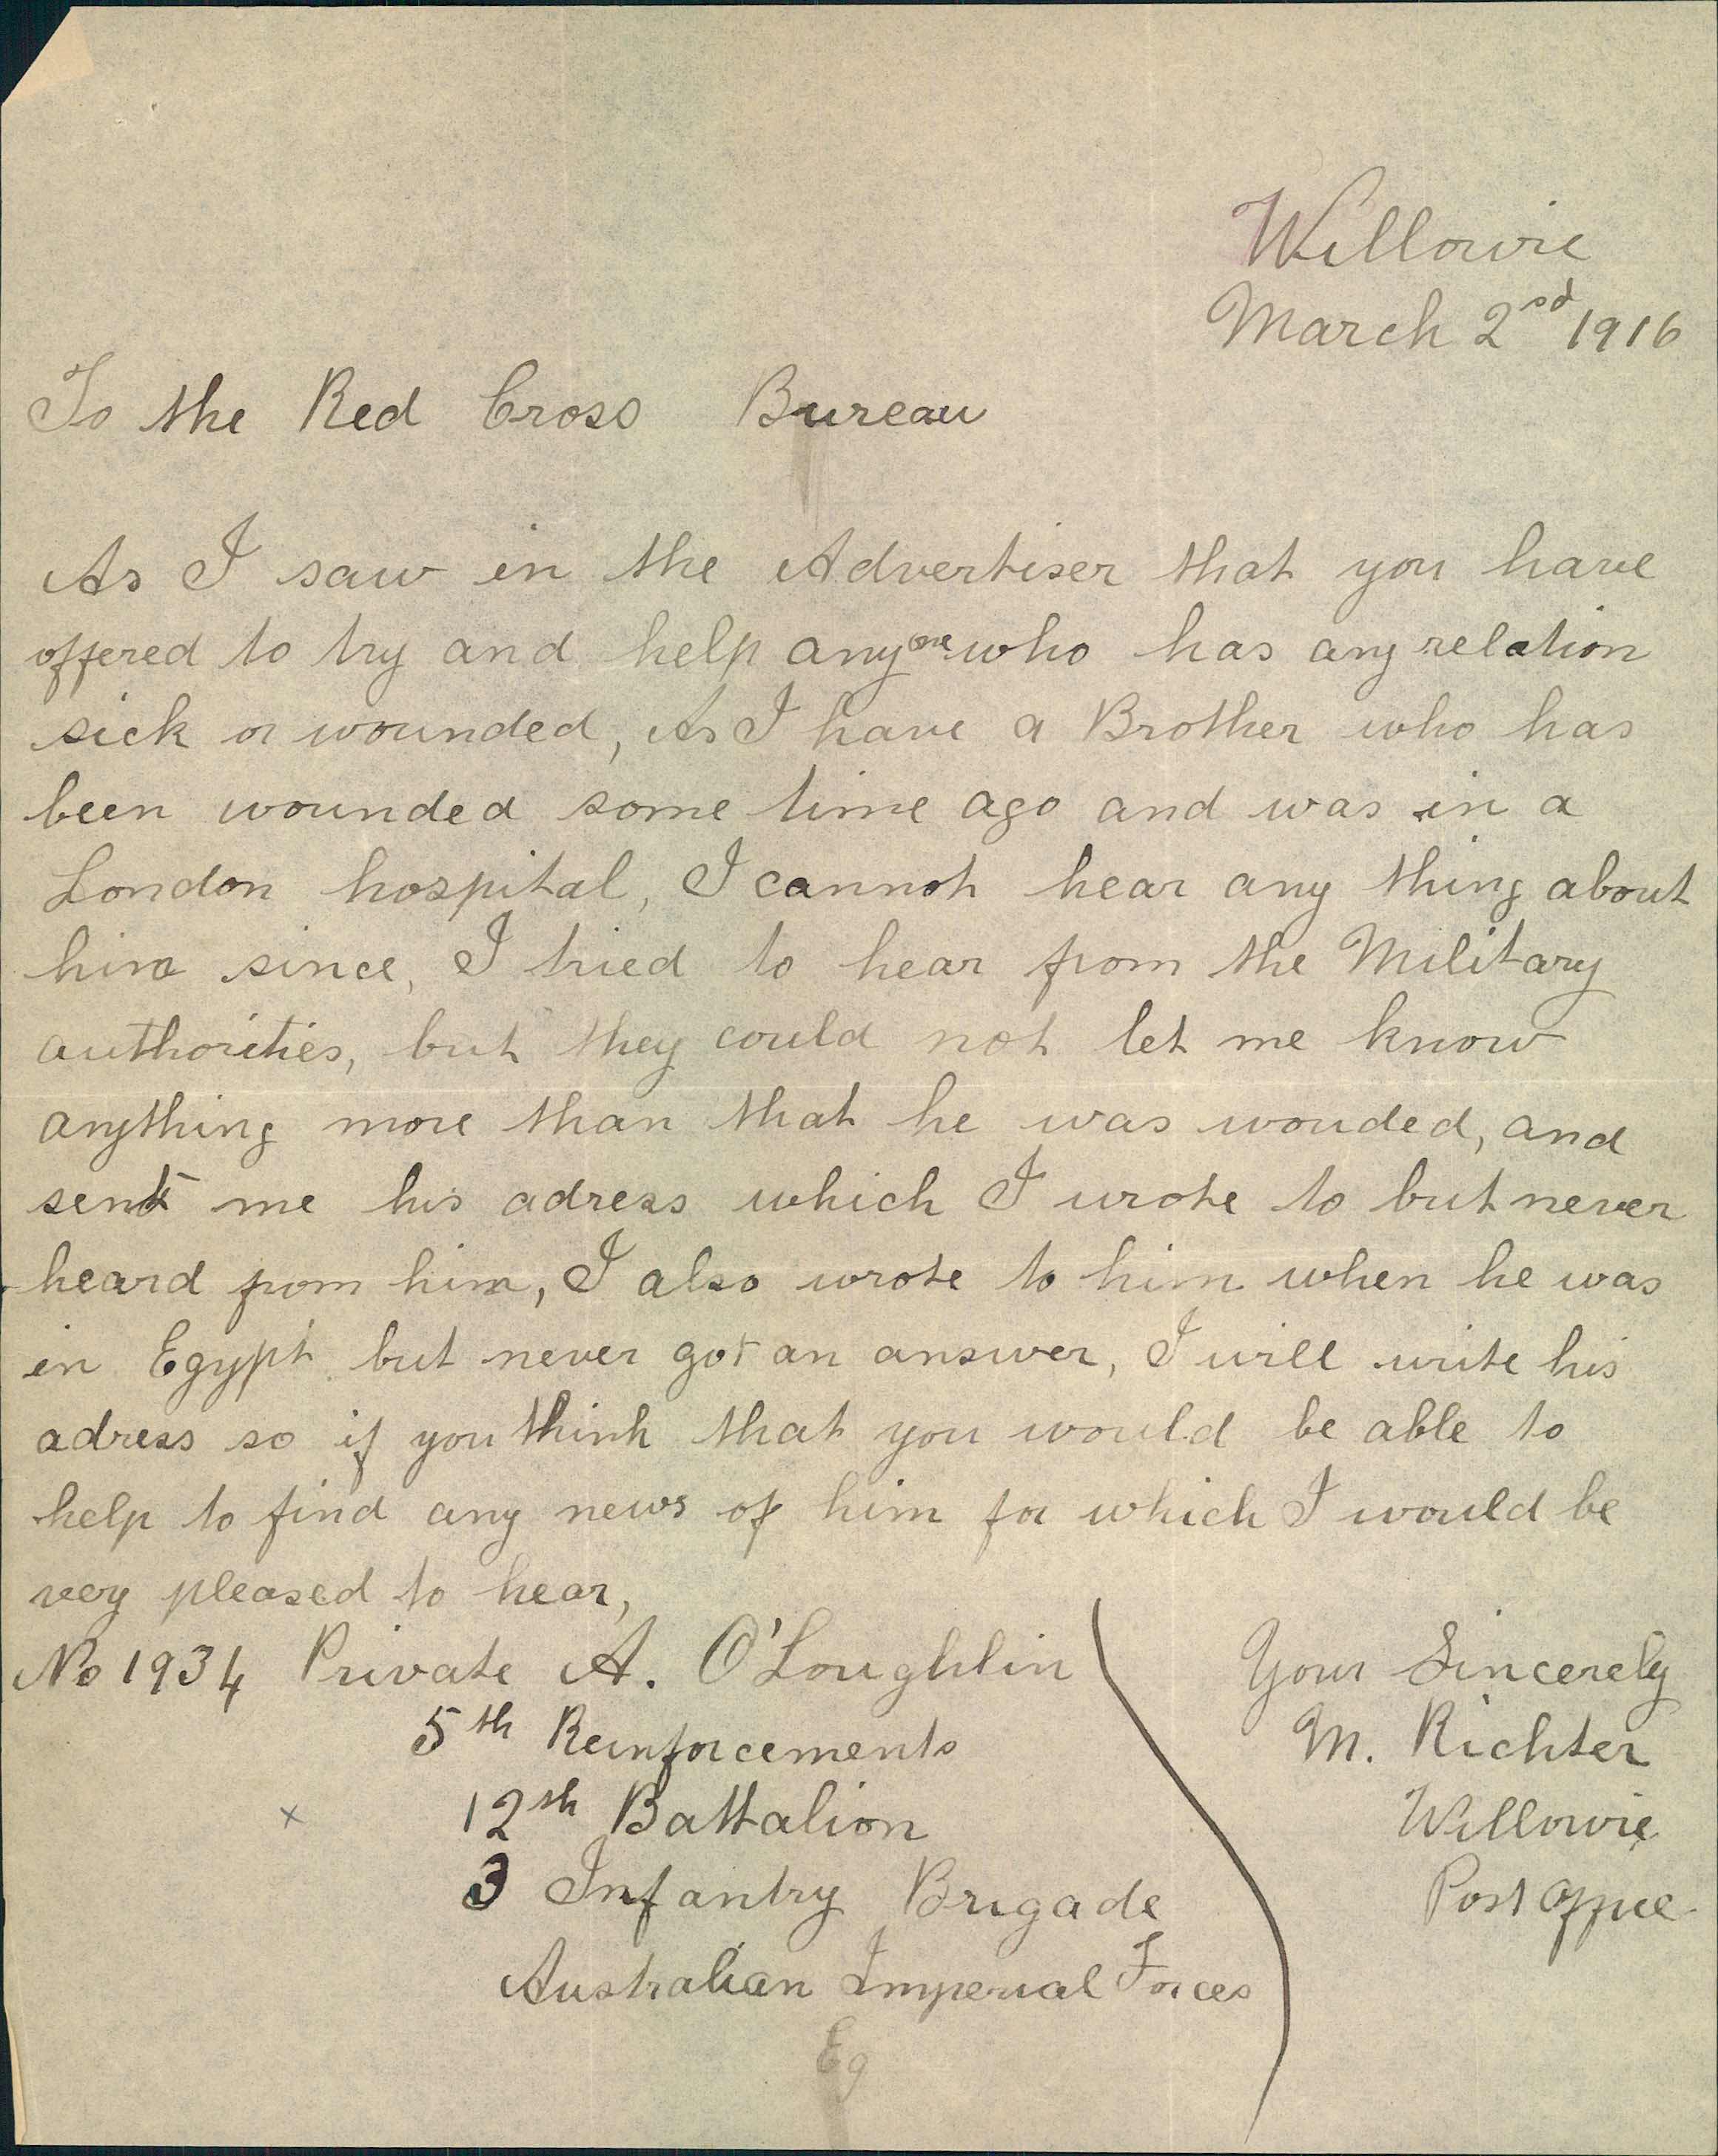 Willowie
March 2nd 1916
To the Red Cross Bureau
As I saw in the Advertiser that you have
offered to try and help anyone who has any relation
sick or wounded, As I have a Brother who has
been wounded some time ago and was in a
London hospital, I cannot hear any thing about
him since, I tried to hear from the Military
authorities, but they could not let me know
anything more than that he was wouded, and
sent me his adress which I wrote to but never
heard from him, I also wrote to him when he was
in Egypt but never got an answer, I will write his
adress so if you think that you would be able to
help to find any news of him for which I would be
very pleased to hear,
No 1934 Private A. O'Loughlin
5th Reinforcements
12th Battalion
3 Infantry Brigade
Australian Imperial Forces
Eg
Your Sincerely
M. Richter
Willowie
Post Office